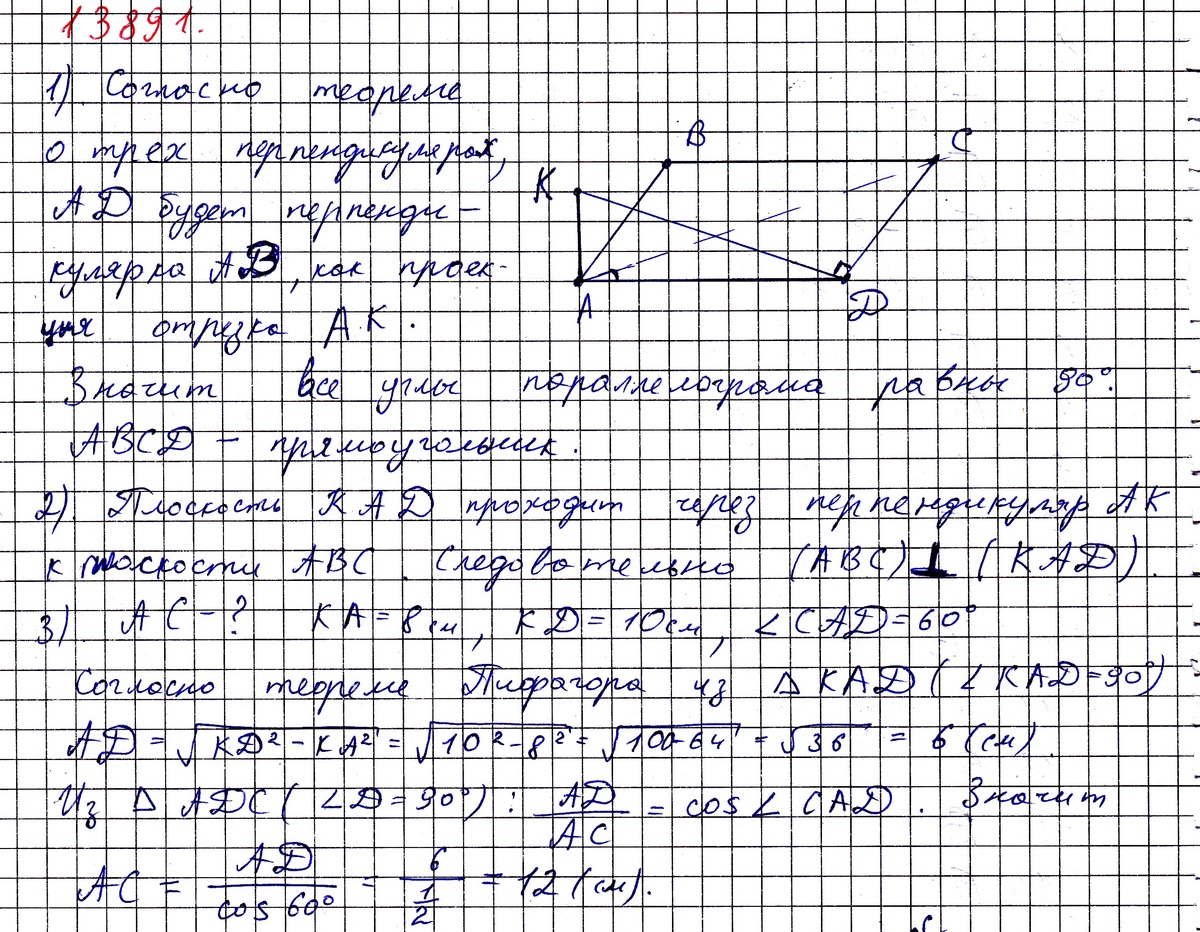 13891.
1) Согласно теореме
о трех перпендикулярах,
АD будет перпенди-
кулярна АВ, как проек-
ция отрезка АК.
B
C
K
A
D
Значит все углы параллелограма равны 90°.
ABCD – прямоугольник.
2) Плоскость KAD проходит через перпендикуляр AK
к плоскости ABC. Следовательно (ABC) ⊥ (KAD).
3) AC - ? KA = 8 см, KD = 10 см, ∠CAD = 60°
Согласно теореме Пифагора из Δ KAD (∠KAD = 90°)
AD = √(KD² - KA²) = √(10² - 8²) = √(100-64) = √36 = 6 (см).
Из Δ ADC (∠D = 90°) : AD/AC = cos ∠CAD. Значит
AC = AD/cos 60° = 6/(1/2) = 12 (см).